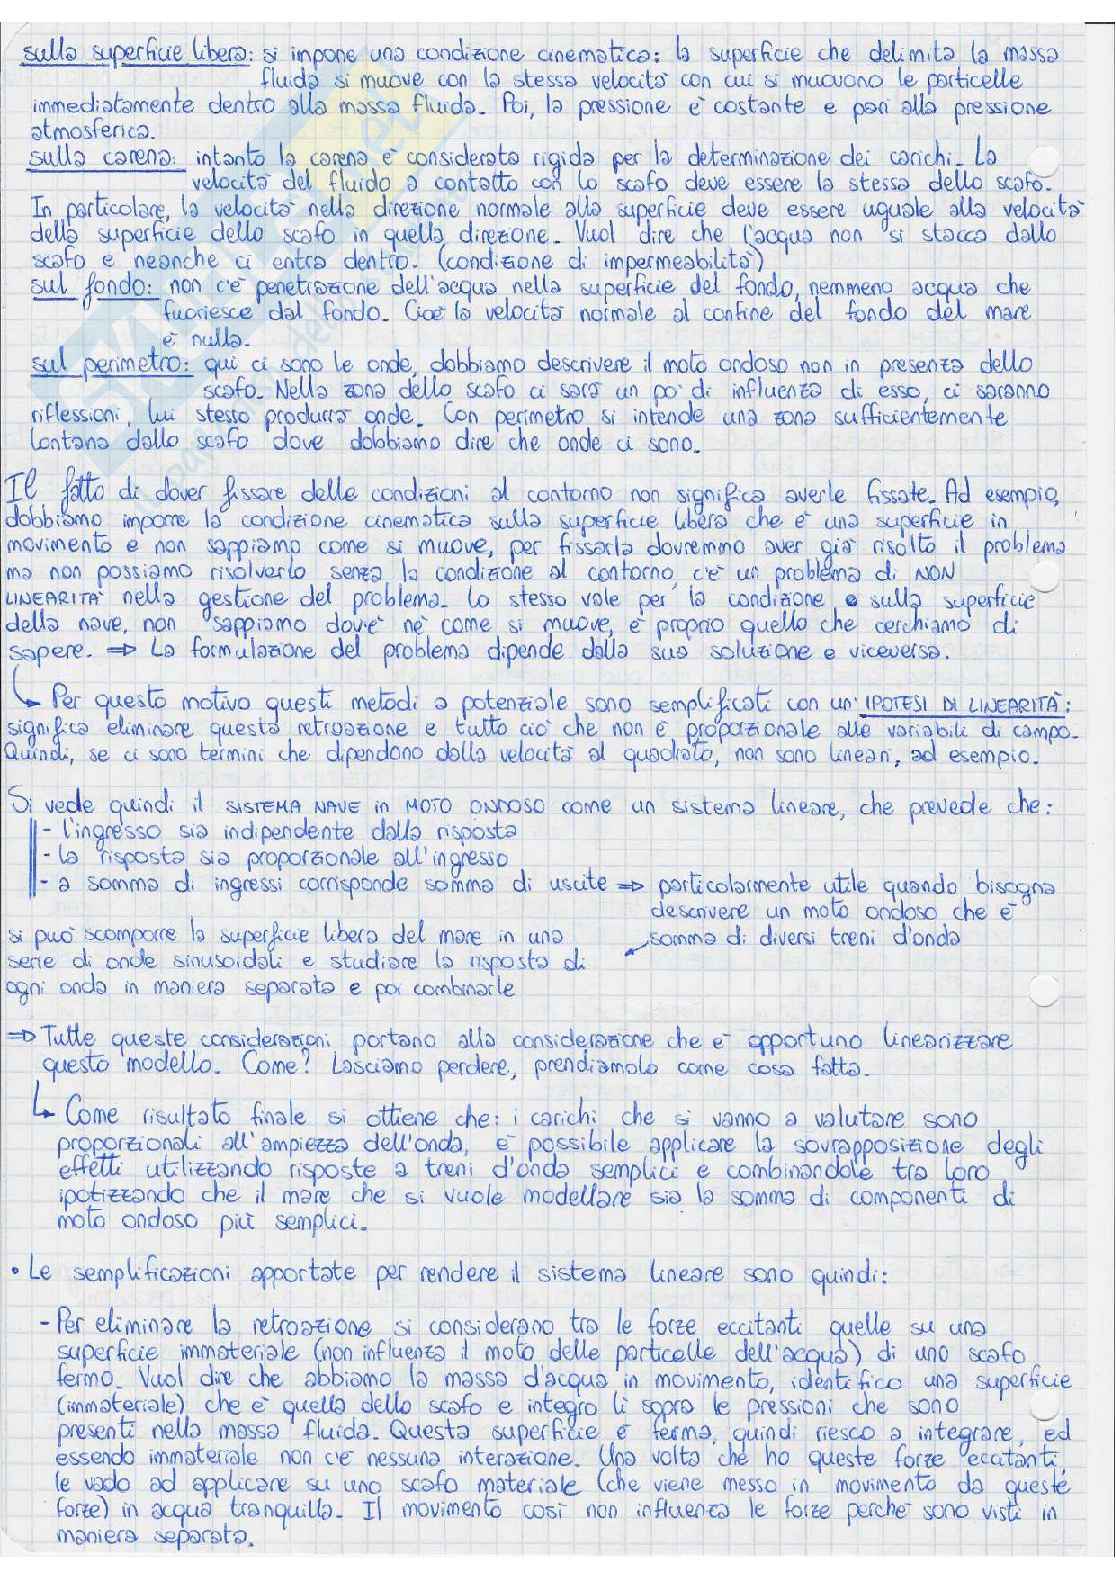 sulla superficie libera: si impone una condizione cinematica: la superficie che delimita la massa
fluida si muove con la stessa velocità con cui si muovono le particelle
immediatamente dentro alla massa fluida. Poi, la pressione è costante e pari alla pressione
atmosferica.
sulla carena: intanto la carena è considerata rigida per la determinazione dei carichi. La
velocità del fluido a contatto con lo scafo deve essere la stessa dello scafo.
In particolare, la velocità nella direzione normale alla superficie deve essere uguale alla velocità
della superficie dello scafo in quella direzione. Vuol dire che l'acqua non si stacca dallo
scafo e neanche ci entra dentro. (condizione di impermeabilità)
sul fondo: non c'è penetrazione dell'acqua nella superficie del fondo, nemmeno acqua che
fuoriesce dal fondo. Cioè la velocità normale al confine del fondo del mare
è nulla.
sul perimetro: qui ci sono le onde, dobbiamo descrivere il moto ondoso non in presenza dello
scafo. Nella zona dello scafo ci sarà un po' di influenza di esso, ci saranno
riflessioni, lui stesso produrrà onde. Con perimetro si intende una zona sufficientemente
lontana dallo scafo dove dobbiamo dire che onde ci sono.
Il fatto di dover fissare delle condizioni al contorno non significa averle fissate. Ad esempio,
dobbiamo imporre la condizione cinematica sulla superficie libera che è una superficie in
movimento e non sappiamo come si muove, per fissarla dovremmo aver già risolto il problema
ma non possiamo risolverlo senza la condizione al contorno, c'è un problema di NON
LINEARITÀ nella gestione del problema. Lo stesso vale per la condizione sulla superficie
della nave, non sappiamo dov'è nè come si muove, è proprio quello che cerchiamo di
sapere. ⇒ La formulazione del problema dipende dalla sua soluzione e viceversa.
↳ Per questo motivo questi metodi a potenziale sono semplificati con un'IPOTESI DI LINEARITÀ:
significa eliminare questa retroazione e tutto ciò che non è proporzionale alle variabili di campo.
Quindi, se ci sono termini che dipendono dalla velocità al quadrato, non sono lineari, ad esempio.
Si vede quindi il SISTEMA NAVE in MOTO ONDOSO come un sistema lineare, che prevede che:
- l'ingresso sia indipendente dalla risposta
- la risposta sia proporzionale all'ingresso
- a somma di ingressi corrisponde somma di uscite ⇒ particolarmente utile quando bisogna
descrivere un moto ondoso che è
somma di diversi treni d'onda
si può scomporre la superficie libera del mare in una
serie di onde sinusoidali e studiare la risposta di
ogni onda in maniera separata e poi combinarle
⇒ Tutte queste considerazioni portano alla considerazione che è opportuno linearizzare
questo modello. Come? Lasciamo perdere, prendiamola come cosa fatta.
↳ Come risultato finale si ottiene che: i carichi che si vanno a valutare sono
proporzionali all'ampiezza dell'onda, è possibile applicare la sovrapposizione degli
effetti utilizzando risposte a treni d'onda semplici e combinandole tra loro
ipotizzando che il mare che si vuole modellare sia la somma di componenti di
moto ondoso più semplici.
• Le semplificazioni apportate per rendere il sistema lineare sono quindi:
- Per eliminare la retroazione si considerano tra le forze eccitanti quelle su una
superficie immateriale (non influenza il moto delle particelle dell'acqua) di uno scafo
fermo. Vuol dire che abbiamo la massa d'acqua in movimento, identifico una superficie
(immateriale) che è quella dello scafo e integro lì sopra le pressioni che sono
presenti nella massa fluida. Questa superficie è ferma, quindi riesco a integrare, ed
essendo immateriale non c'è nessuna interazione. Una volta che ho queste forze eccitanti,
le vado ad applicare su uno scafo materiale (che viene messo in movimento da queste
forze) in acqua tranquilla. Il movimento così non influenza le forze perchè sono visti in
maniera separata.